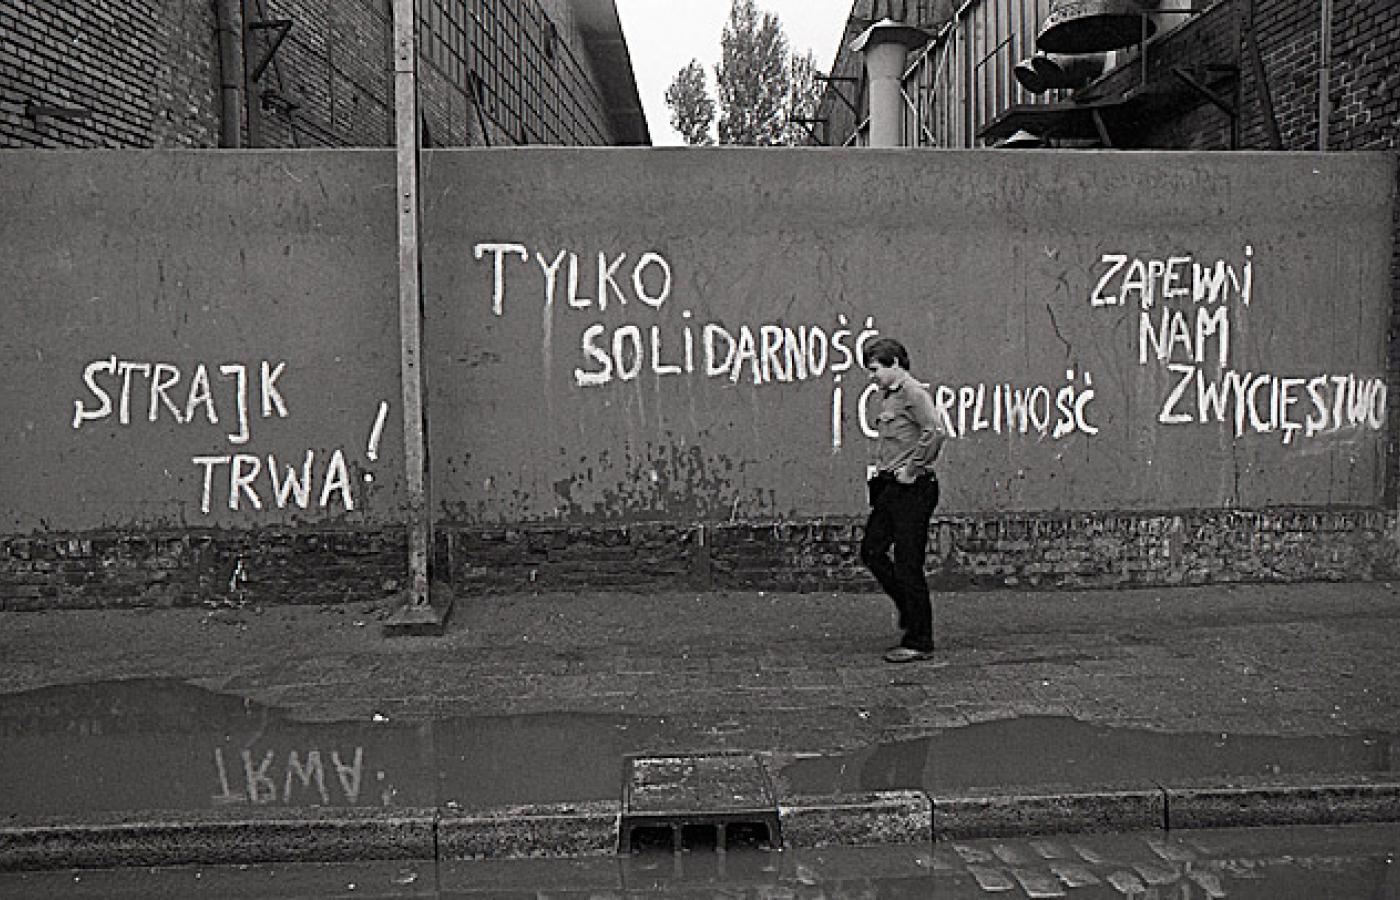 STRAJK
TRWA!
TYLKO
SOLIDARNOŚĆ
I C RPLIWOŚĆ
ZAPEWNi
NAM
ZWYCIĘSTWO
TRWA!